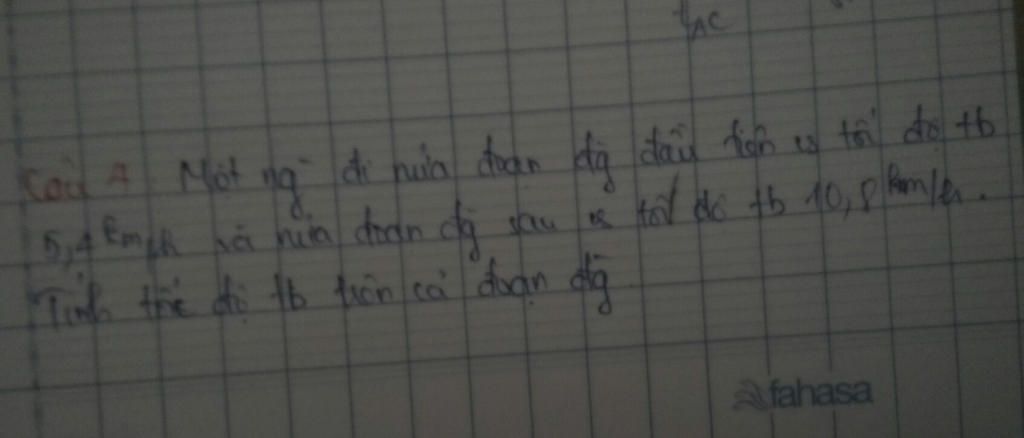 AC
Câu 4. Một ng̃ đi nửa đoạn đg̃ đầu tiên vs tốc độ tb
5,4 km/h và nửa đoạn đg̃ sau vs tốc độ tb 10,8 km/h.
Tính tốc độ tb trên cả đoạn đg̃
fahasa